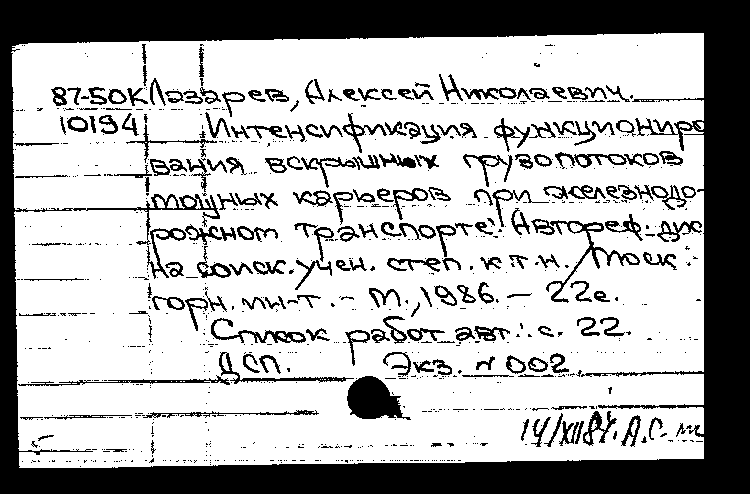 87-50К Лазарев, Алексей Николаевич.
10194 Интенсификация функциониро
вания вскрышных грузопотоков
мощных карьеров при железнодо-
рожном транспорте: Автореф. дис
на соиск. учен. степ. к.т.н. / Моск.
горн. ин-т. - М., 1986. - 22с.
Список работ авт.: с. 22.
ДСП. Экз. № 002.
14/XII 87. А.С.